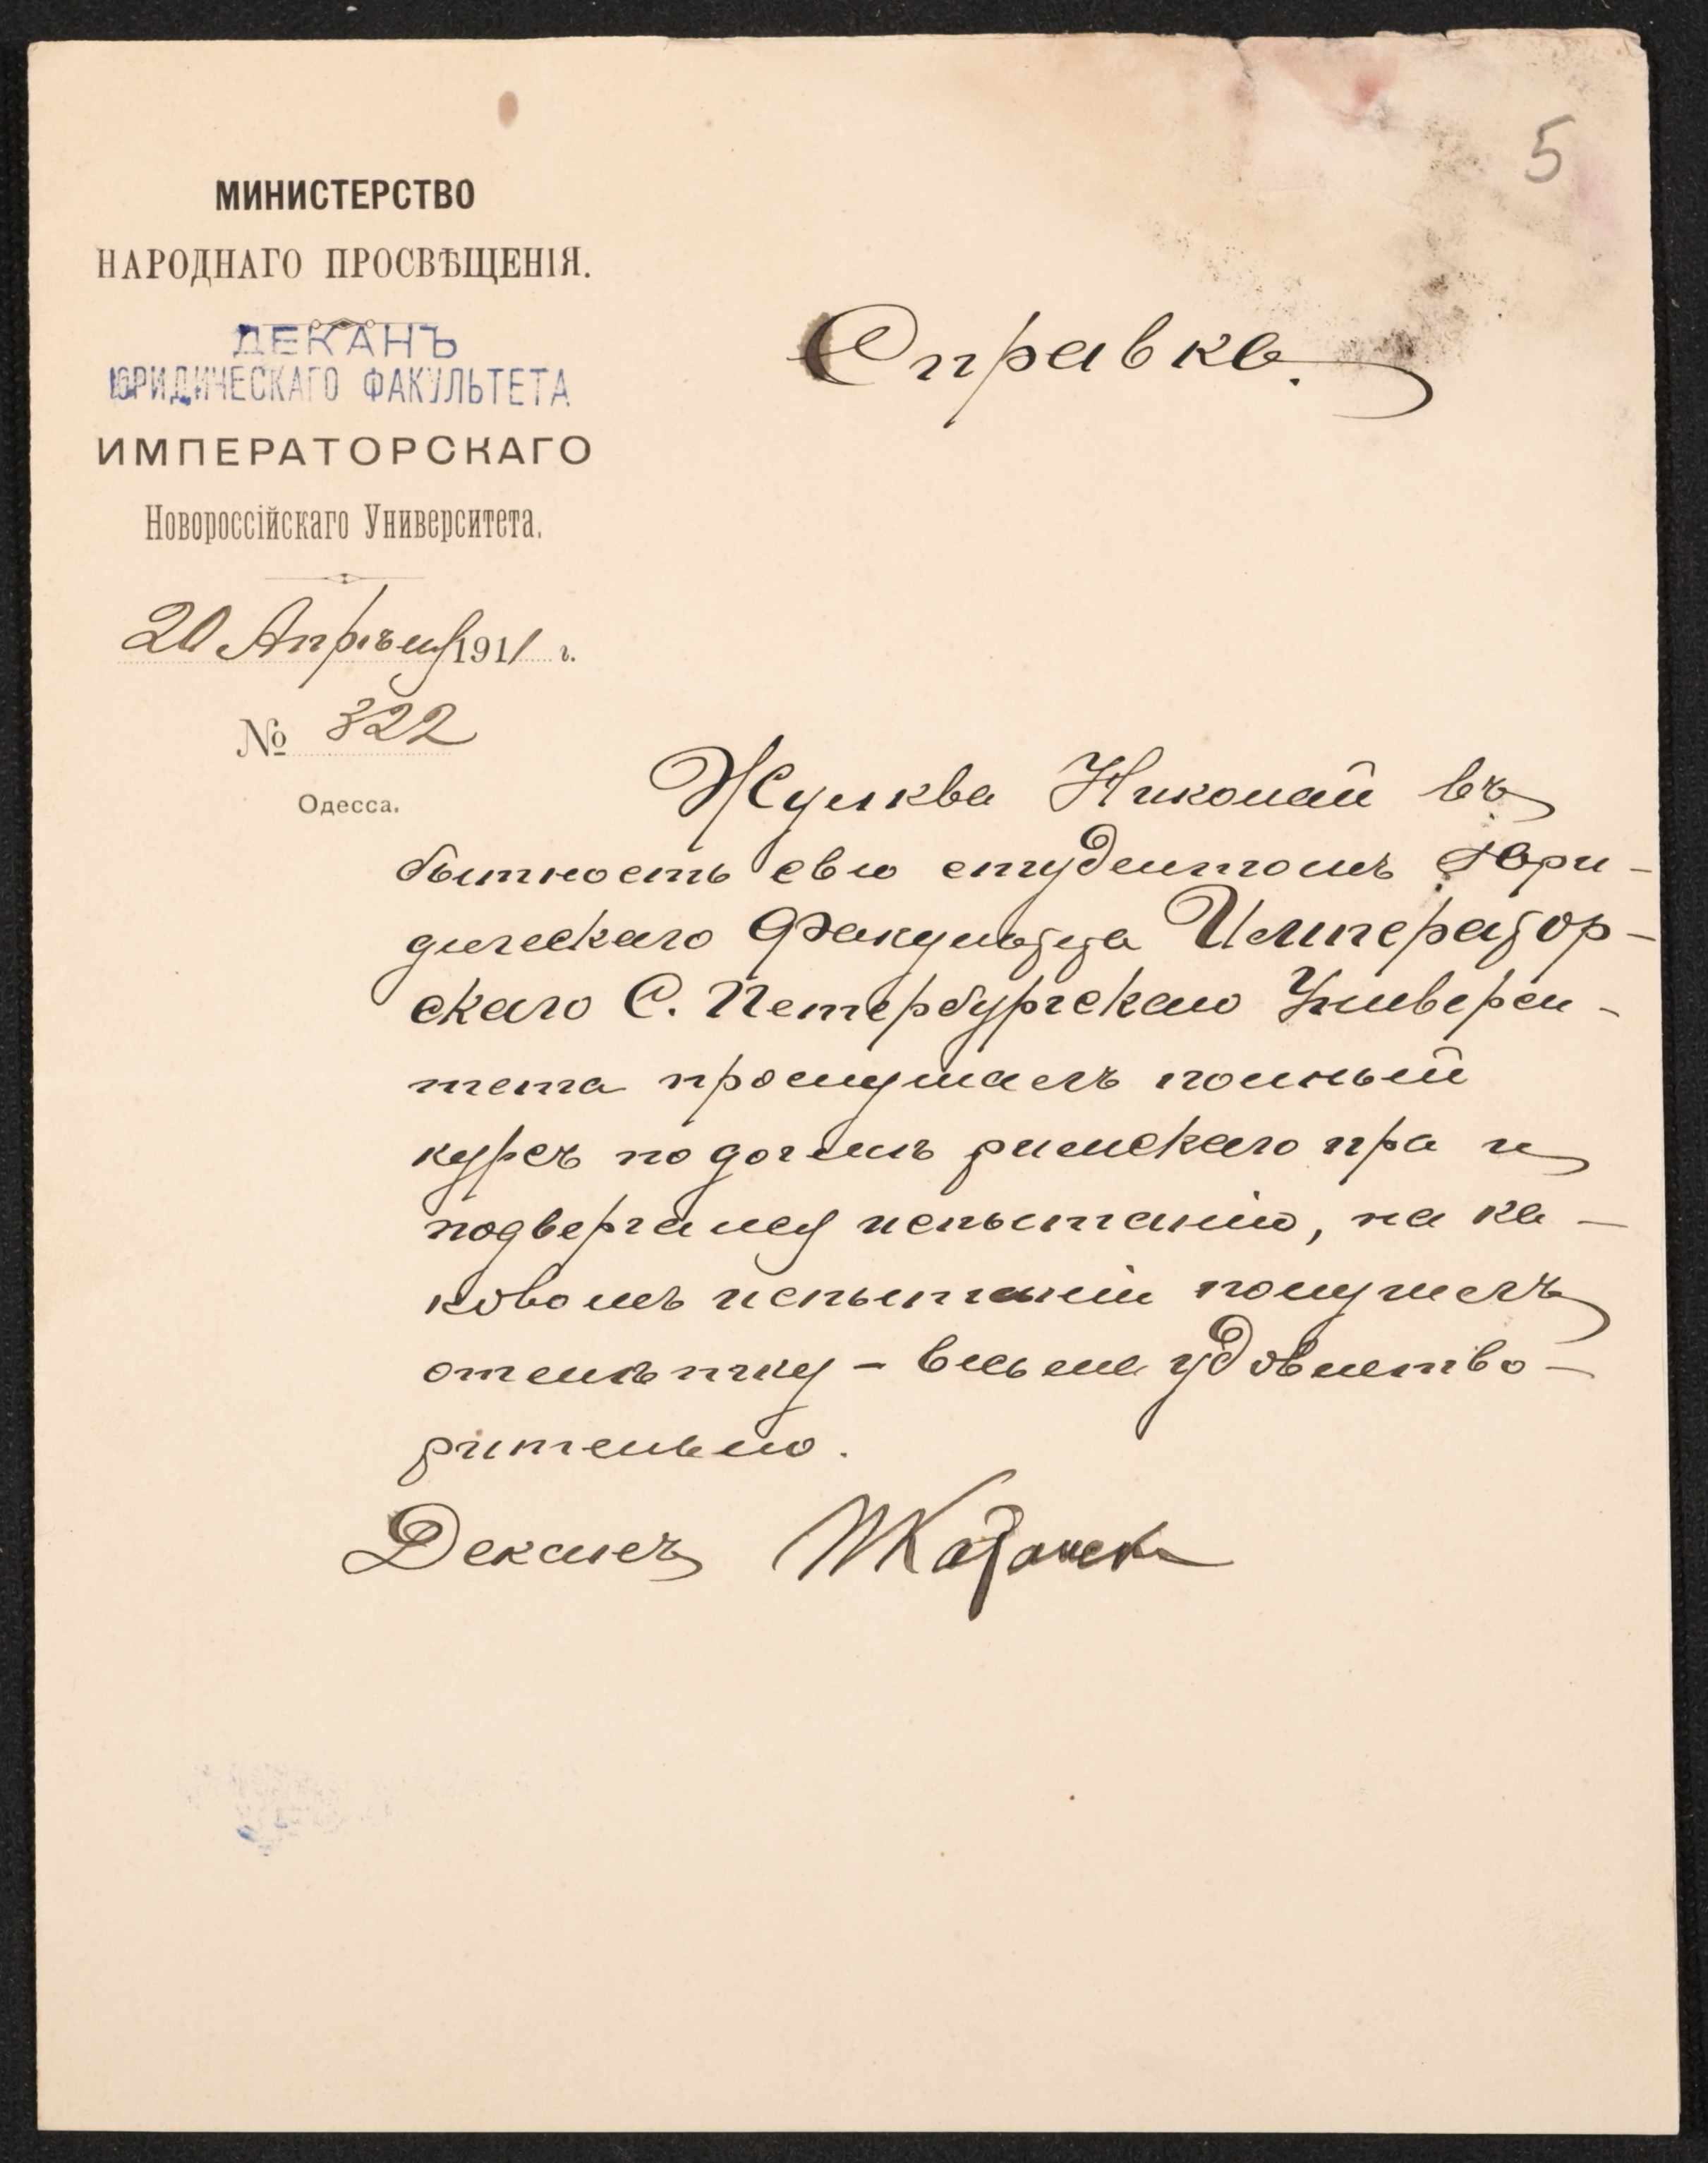 5
МИНИСТЕРСТВО
НАРОДНАГО ПРОСВѢЩЕНІЯ.
ДЕКАНЪ
ЮРИДИЧЕСКАГО ФАКУЛЬТЕТА
ИМПЕРАТОРСКАГО
Новороссійскаго Университета.
20 Апрѣля 1911 г.
№ 322
Одесса.
Справка.
Николай въ
бытность свою студентомъ Юри-
дическаго Факультета Император-
скаго С. Петербургскаго Универси-
тета прослушалъ полный
курсъ по догмѣ римскаго пра и
подвергался испытанію, на ка-
ковомъ испытаніи получилъ
отмѣтку – весьма удовлетво-
рительно.
Деканъ